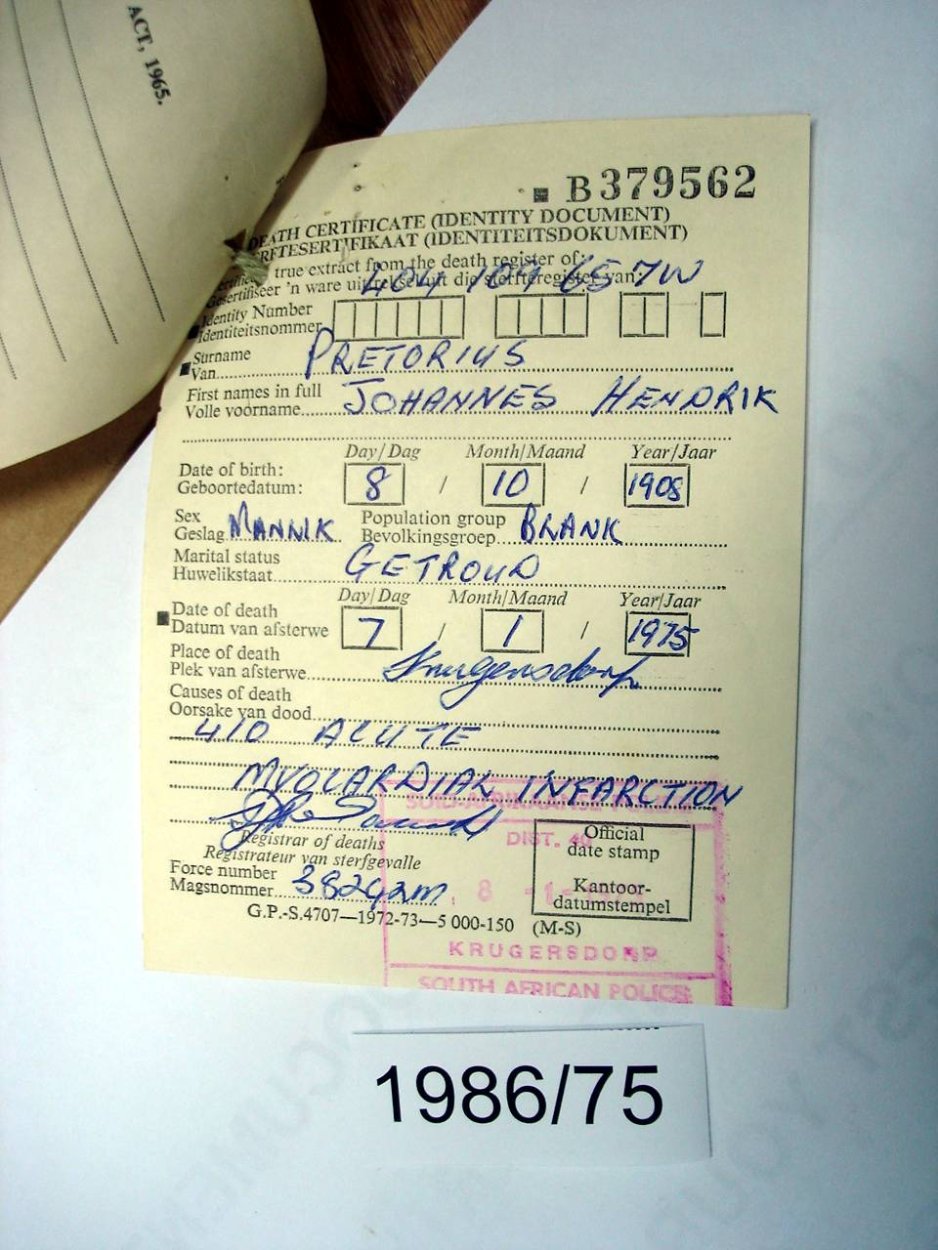 ACT, 1965.
B379562
DEATH CERTIFICATE (IDENTITY DOCUMENT)
RFTESERTIFIKAAT (IDENTITEITSDOKUMENT)
true extract from the death register of:
Gesertifiseer 'n ware uittreksel uit die sterfteregister van:
404 107 657W
Identity Number
Identiteitsnommer
Surname
Van PRETORIUS
First names in full
Volle voorname JOHANNES HENDRIK
Day/Dag Month/Maand Year/Jaar
Date of birth:
Geboortedatum: 8 / 10 / 1908
Sex Population group
Geslag MANNIK Bevolkingsgroep BLANK
Marital status
Huwelikstaat GETROUD
Day/Dag Month/Maand Year/Jaar
Date of death
Datum van afsterwe 7 / 1 / 1975
Place of death
Plek van afsterwe Krugersdorp
Causes of death
Oorsake van dood
410 ACUTE
MYOCARDIAL INFARCTION
Registrar of deaths
Registrateur van sterfgevalle
Force number
Magsnommer 38292M
G.P.-S.4707—1972-73—5 000-150 (M-S)
Official
date stamp
Kantoor-
datumstempel
SUID-AFRIKAANSE
DIST. 40
8 -1-
KRUGERSDORP
SOUTH AFRICAN POLICE
1986/75